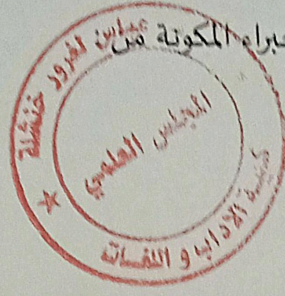 خبراء المكونة من
عباس لغرور خنشلة
المجلس العلمي
كلية الآداب و اللغات